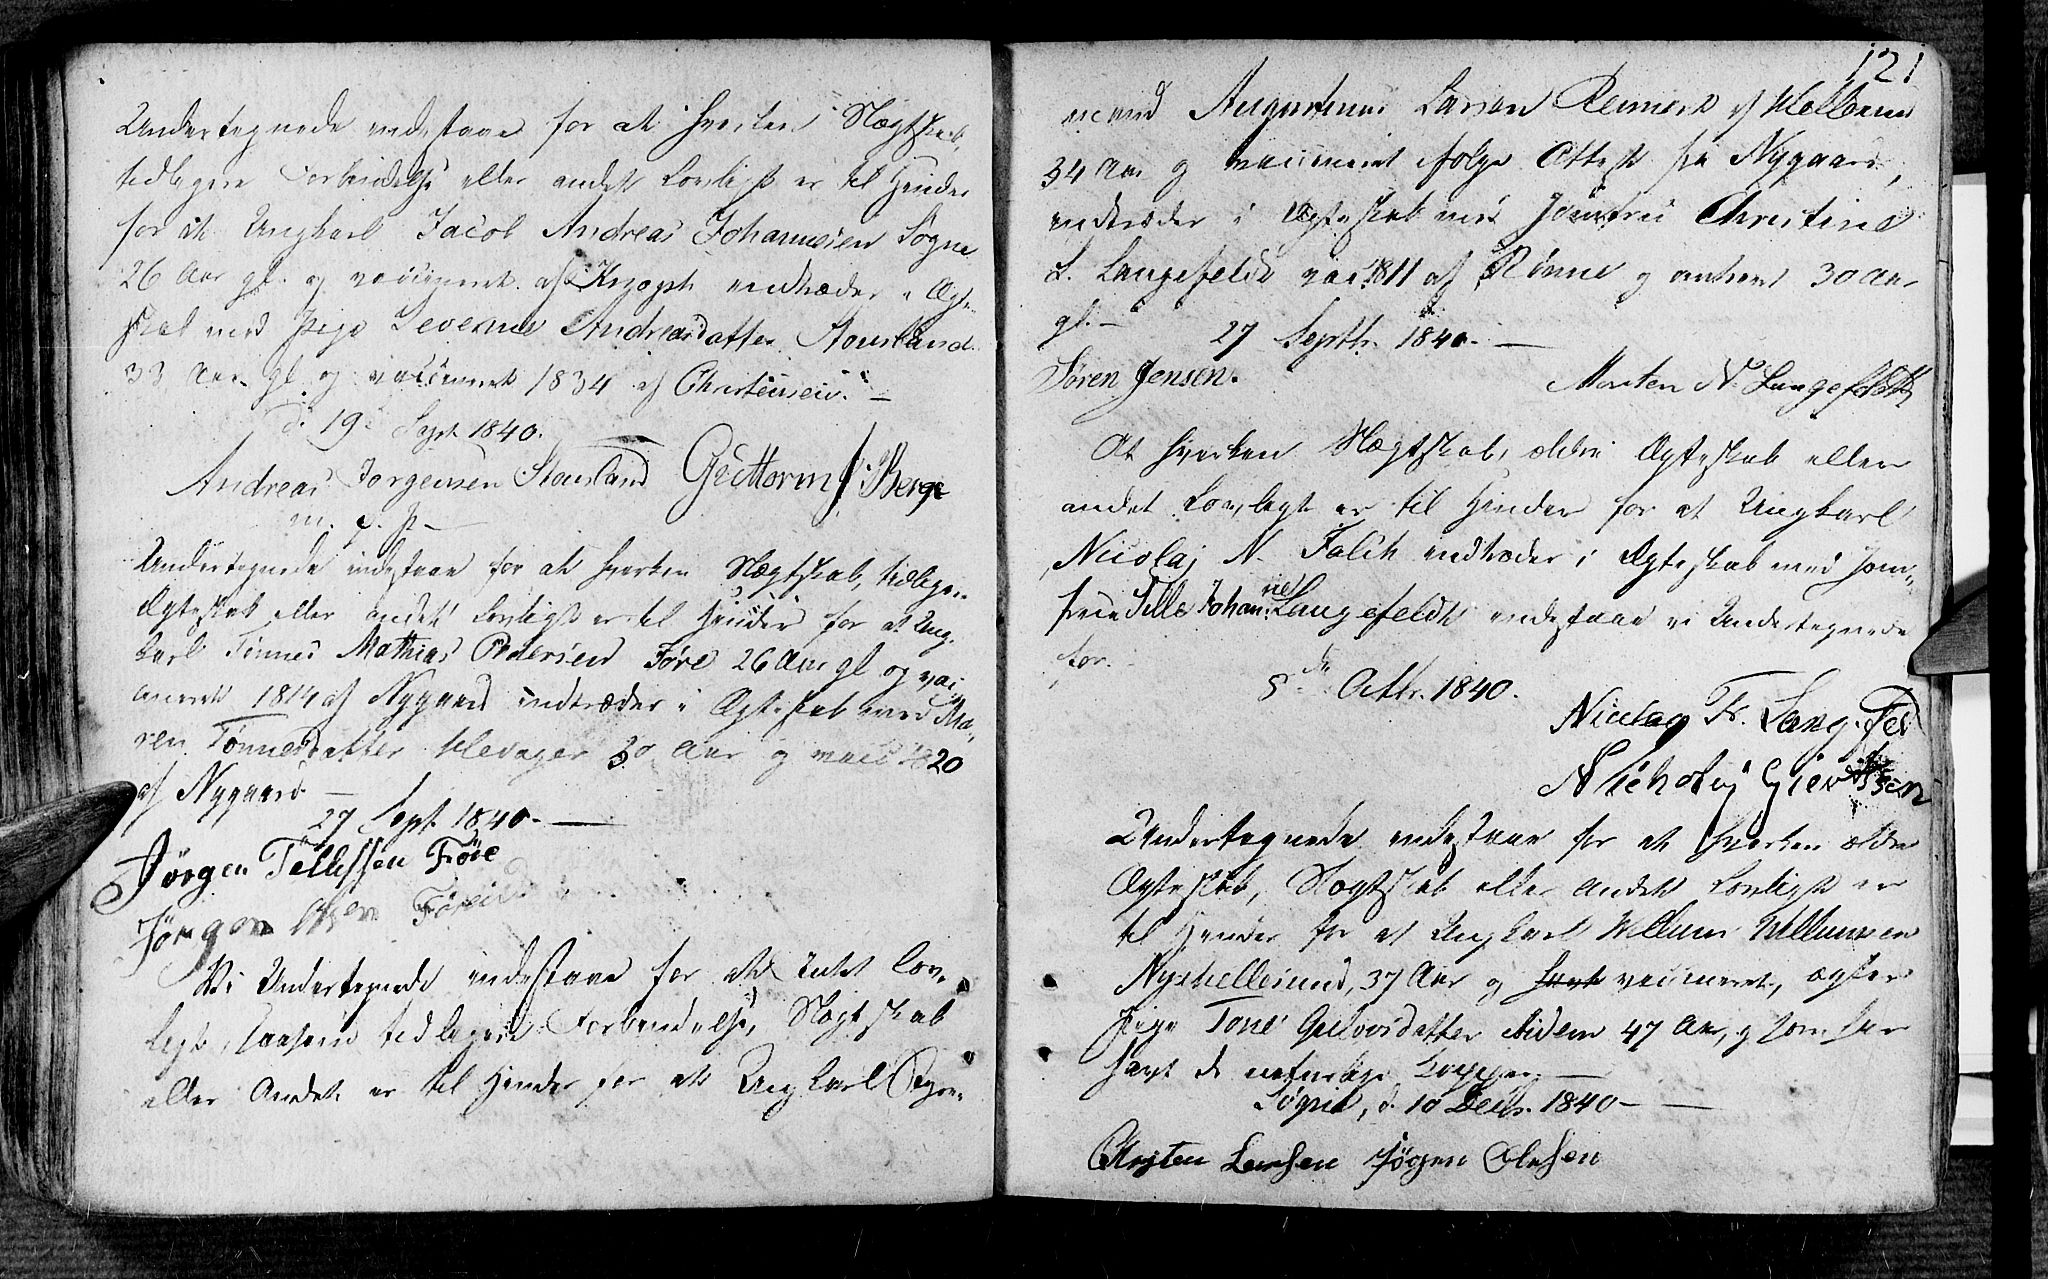 Undertegnede indestaae for at hverken Slægtskab,
tidligere Forbindelse eller andet Lovligt er til Hinder
for at Ungkarl Jacob Andreas Johannesen Søgne
26 Aar gl. og vaccineret af Knoph indtræder i Ægte-
skab med Pige Severine Andreasdatter Stousland
33 Aar gl og vaccineret 1834 af Christensen. —
d. 19 Sept 1840.
Andreas Jorgensen Stousland Guttorm Berge
m. f. P.
Undertegnede indestaae for at hverken Slægtskab, tidligere
Ægteskab eller andet Lovligt er til Hinder for at Ung-
karl Tønnes Mathias Pedersen Føre 26 Aar gl og vac-
cineret 1814 af Nygaard indtræder i Ægteskab med Ma-
ren Tønnesdatter Klevager 30 Aar og vacc 1820
af Nygaard —
27 Sept. 1840. —
Jörgen Tellefsen Före
Jörgen
Vi Undertegnede indestaae for at Intet Lov-
ligt, saasom tidligere Forbindelse, Slægtskab
eller Andet er til Hinder for at Ungkarl
121
mand Augustinus Larsen Reinert af
34 Aar og vaccineret ifølge Attest fra Nygaard,
indtræder i Ægteskab med Jomfru Christine
L. Langefeldt vac. 1811 af Rønne og omtrent 30 Aar
gl. —
27 Septbr. 1840. —
Søren Jensen. Morten N. Langefeldt
At hverken Slægtskab, ældre Ægteskab eller
andet Lovligt er til Hinder for at Ungkarl
Nicolaj N. Falch indtræder i Ægteskab med Jom-
frue Tille Johanne Langefeldt indestaae vi Undertegnede
for.
5de Octbr. 1840.
Nicolay Fr. Langfeld
Nicholaj Giertsen
Undertegnede indestaae for at hverken ældre
Ægteskab, Slægtskab eller Andet Lovligt er
til Hinder for at Ungkarl Willum Willumsen
Nyehellesund, 37 Aar og havt vaccineret, ægter
Pige Tone Gulovsdatter ibidem 47 Aar, og som har
havt de naturlige Kopper —
Søgne, d. 10 Decbr. 1840 —
Christen Larsen Jörgen Olesen